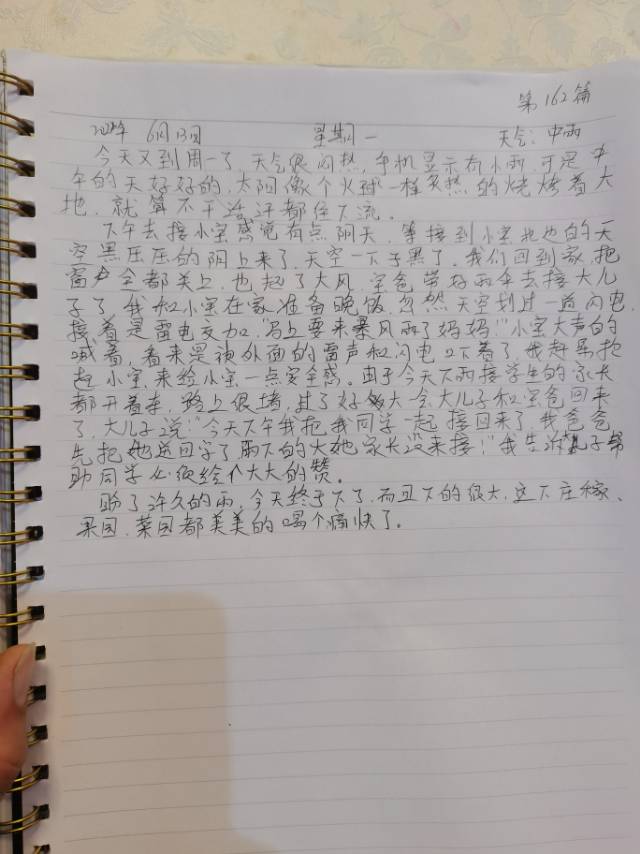 第162篇
2022年 6月13日 星期一 天气：中雨
今天又到周一了，天气很闷热，手机显示有小雨，可是中
午的天好好的，太阳像个火球一样炙热的烧烤着大
地，就算不干活汗都往下流。
下午去接小宝感觉有点阴天，等接到小宝北边的天
空黑压压的阴上来了，天空一下子黑了，我们回到家，把
窗户全都关上，也起了大风，宝爸带好雨伞去接大儿
子了，我和小宝在家准备晚饭，忽然天空划过一道闪电，
接着是雷电交加，“马上要来暴风雨了妈妈！”小宝大声的
喊着，看来是被外面的雷声和闪电吓着了，我赶紧抱
起小宝，来给小宝一点安全感。由于今天下雨接学生的家长
都开着车，路上很堵，过了好大一会大儿子和宝爸回来
了，大儿子说：“今天下午我把我同学一起接回来了，我爸爸
先把她送回家了，雨下的大她家长没来接！”我告诉儿子帮
助同学必须给个大大的赞。
盼了许久的雨，今天终于下了，而且下的很大，这下庄稼、
果园、菜园都美美的喝个痛快了。